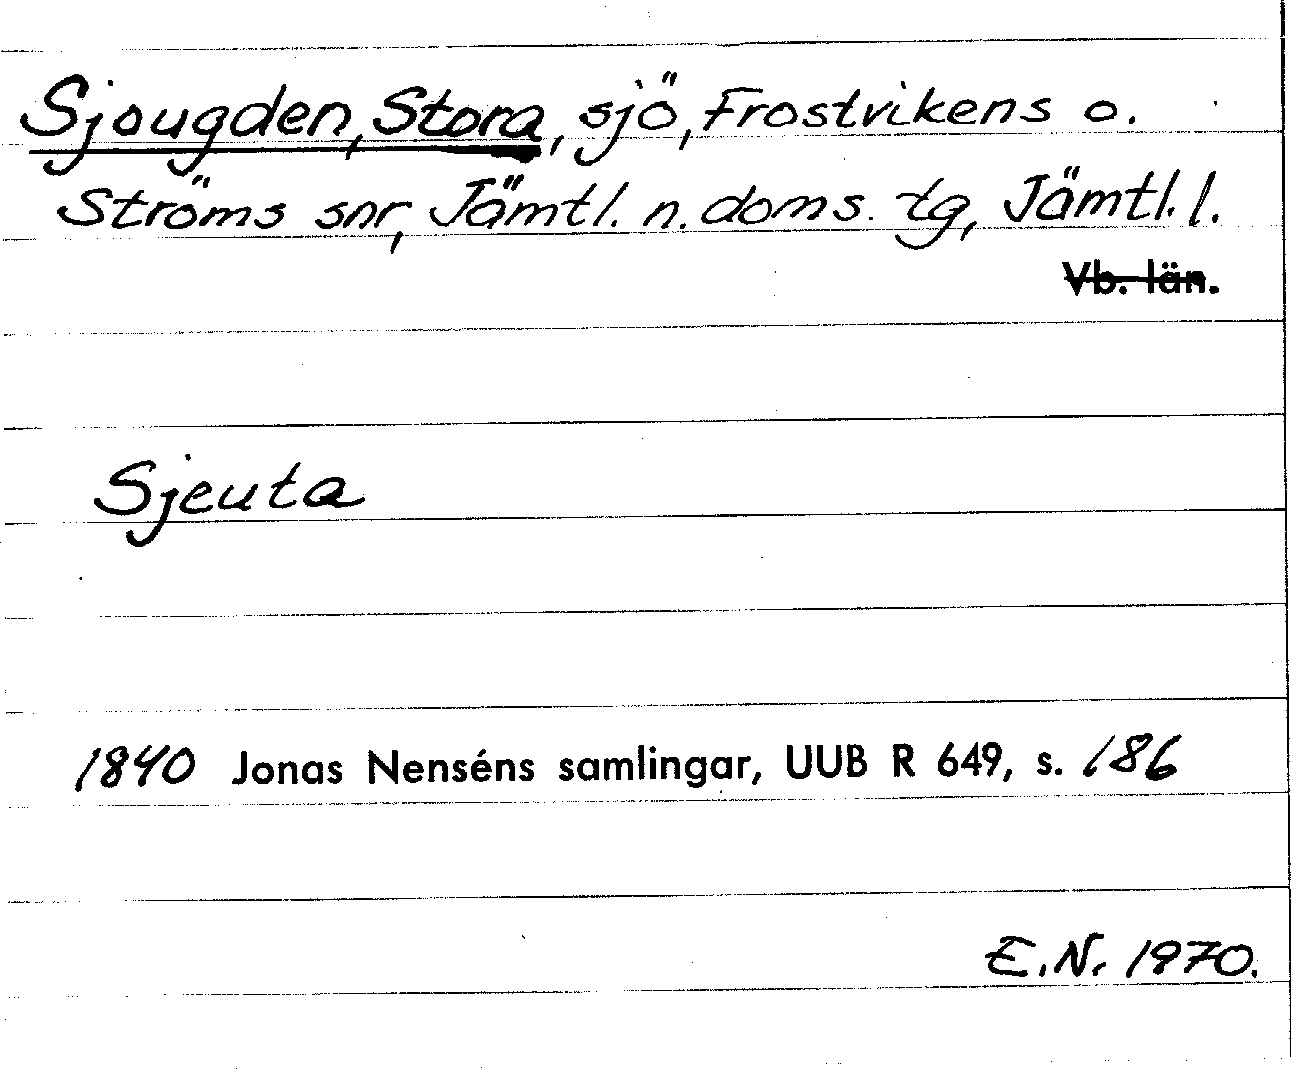 Sjougden, Stora, sjö, Frostvikens o.
Ströms snr, Jämtl. n. doms. tg, Jämtl. l.
Vb. län.
Sjeuta
1840 Jonas Nenséns samlingar, UUB R 649, s. 186
E.N. 1970.